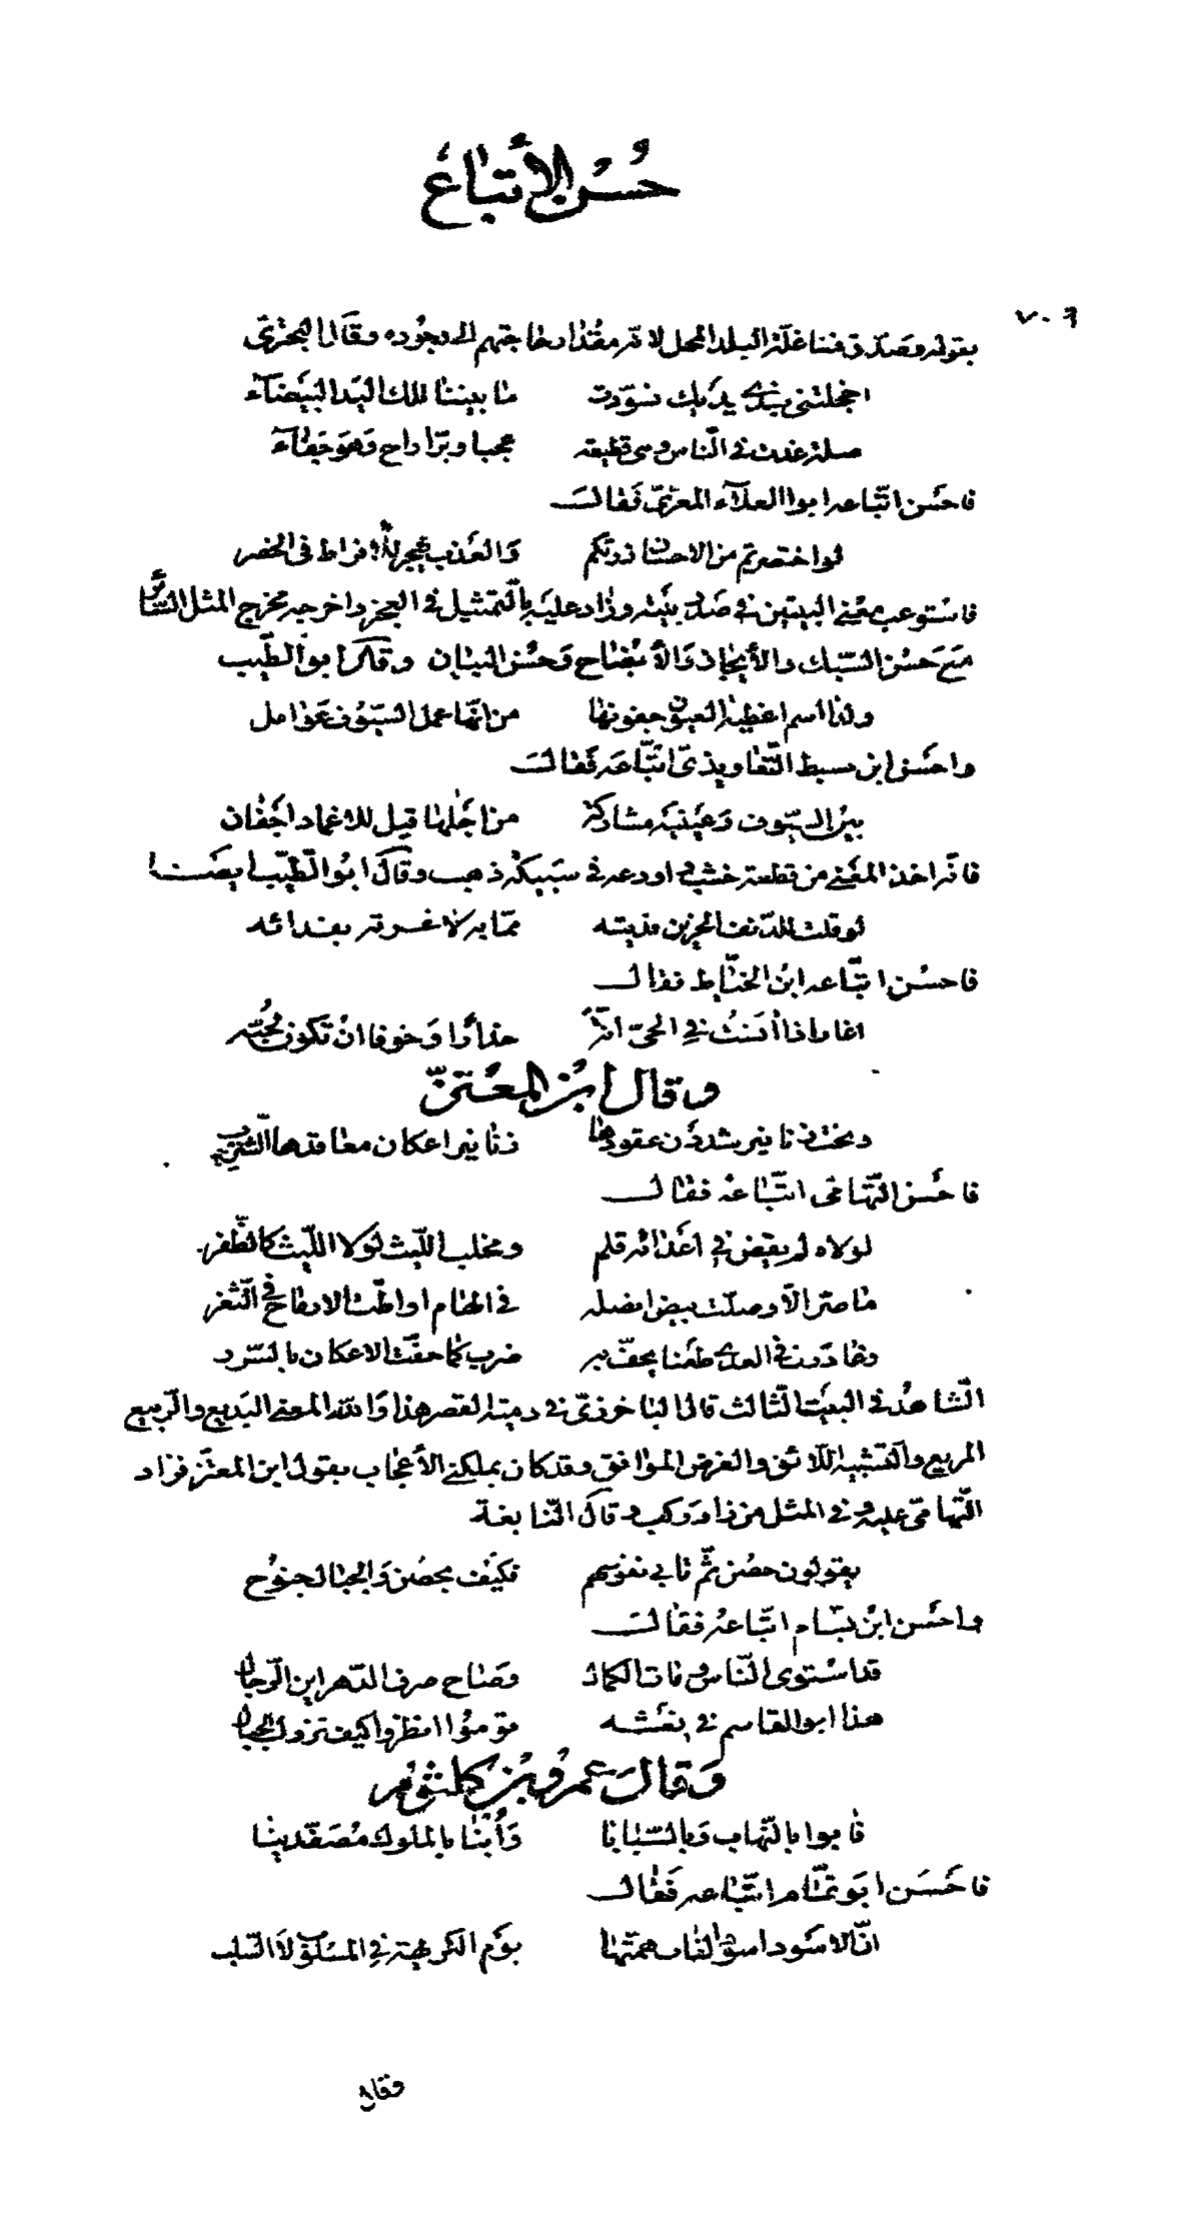 حُسْنُ الأتباع
٧٠٦
بقوله وصدق فننا غلة البلد المحل لانه مقدار حاجتهم الى وجوده وقال البحتري
اخجلتني بندى يديك فسوّدت ما بيننا تلك اليد البيضاء
صلة غدت في الناس وهي قطيعة عجبا وبرّا راح وهو جفاء
فاحسن اتّباعه ابوا العلاء المعرّي فقال
لو اختصرتم من الاحسان زرتكم والعذب يهجر للافراط في الخصر
فاستوعب معنى البيتين في صدر بيته وزاد عليه بالتمثيل في العجز واخرجه مخرج المثل السّائر
مع حسن السّبك والأيجاز والأيضاح وحسن البيان وقال ابو الطّيب
ولذا اسم اغطية العيون جفونها من انّها عمل السّيوف عوامل
واحسن ابن سبط التّعاويذيّ اتّباعه فقال
بين السّيوف وعينيه مشاركة من اجلها قيل للاغماد اجفان
فانّه اخذ المعنى من قطعة خشب اودعه في سبيكة ذهب وقال ابو الطّيّب ايضا
لو قلت للدّنف الحزين فديته ممّا به لاغرته بفدائه
فاحسن اتّباعه ابن الخيّاط فقال
اغار اذا آنست في الحيّ انّة حذارا وخوفا ان تكون لحبّه
وقال ابن المعتزّ
وتحت زنانير شددن عقودها زنانير اعكان معاقدها السّرر
فاحسن التّهاميّ اتّباعه فقال
لولاه لم يقض في اعدائه قلم ومخلب اللّيث لولا اللّيث كالظّفر
ما صرّ الّا وصلّت بيض انصله في الهام او اطّت الارماح في الثّغر
وغادرت في العدى طعنا يحفّ به ضرب كما حفّت الاعكان بالسّرر
الشّاهد في البيت الثّالث قال الباخرزيّ في دمية القصر هذا والله المعنى البديع والرّبيع
المريع والتشبيه اللّائق والغرض الموافق وقد كان يملكني الأعجاب بقول ابن المعتز فزاد
التّهاميّ عليه وفي المثل من زاد ركب وقال النّابغة
يقولون حصن ثمّ تابى نفوسهم فكيف بحصن والجبال جنوح
واحسن ابن بسّام اتّباعه فقال
قد استوى النّاس ومات الكمال وصاح صرف الدّهر اين الرّجال
هذا ابو القاسم في نعشه قوموا انظروا كيف تزول الجبال
وقال عمرو بن كلثوم
فآبوا بالنّهاب وبالسّبايا وأبنا بالملوك مصفّدينا
فاحسن ابو تمّام اتّباعه فقال
انّ الاسود اسود الغاب همّتها يوم الكريهة في المسلوب لا السّلب
وقال